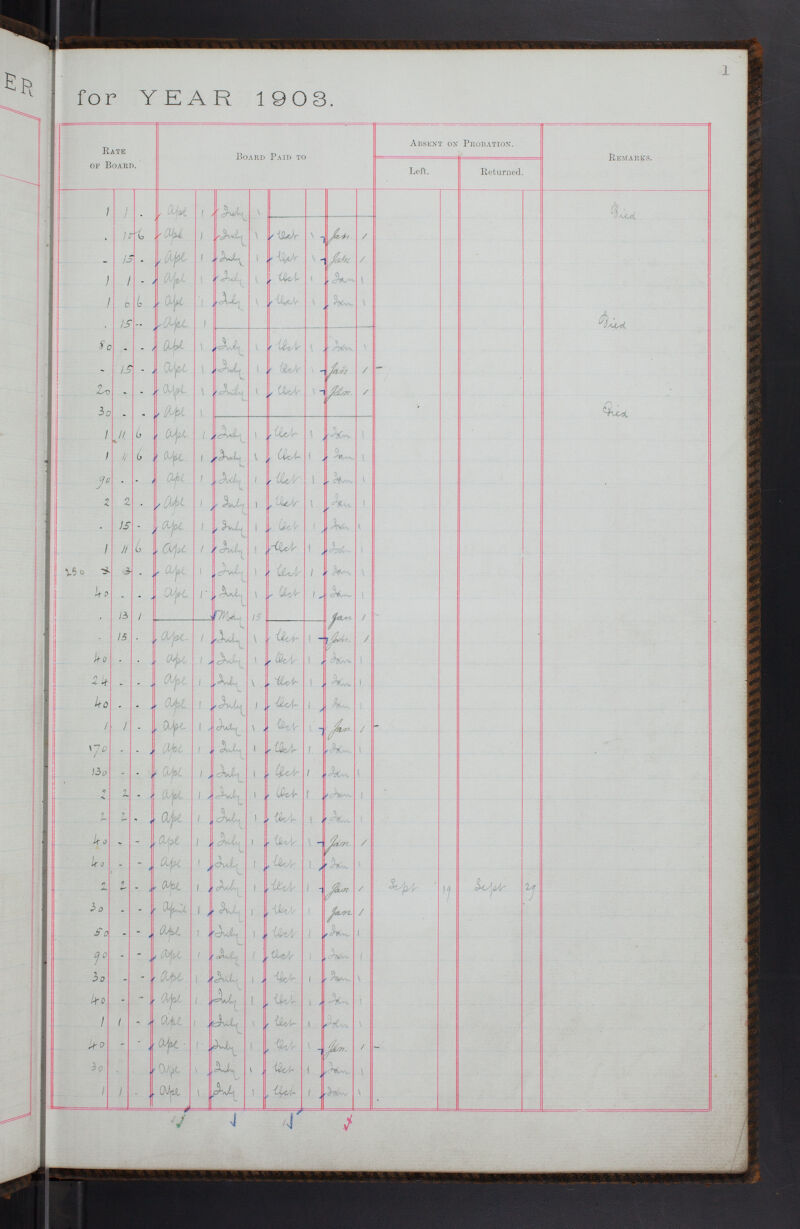 1
ER
for YEAR 1903.
RATE OF BOARD. BOARD PAID TO ABSENT ON PROBATION. REMARKS.
Left. Returned.
1 1 . Apl 1 July 1 Died
. 10 6 Apl 1 July 1 Oct 1 Jan 1
- 15 - Apl 1 July 1 Oct 1 1
1 1 - Apl 1 July 1 Oct 1 Jan 1
1 0 6 Apl 1 July 1 Oct 1 Jan 1
. 15 - - Apl 1 Died
80 - - Apl 1 July 1 Oct 1 Jan 1
- 15 - Apl 1 July 1 Oct 1 Jan 1 -
20 - - Apl 1 July 1 Oct 1 Jan 1
30 - - Apl 1 Died
1 11 6 Apl 1 July 1 Oct 1 Jan 1
1 11 6 Apl 1 July 1 Oct 1 Jan 1
90 . - Apl 1 July 1 Oct 1 Jan 1
2 2 . Apl 1 July 1 Oct 1 Jan 1
. 15 - Apl 1 July 1 Oct 1 Jan 1
1 11 6 Apl 1 July 1 Oct 1 Jan 1
250 3 3 . Apl 1 July 1 Oct 1 Jan 1
40 . - Apl 1 July 1 Oct 1 Jan 1
. 13 1 May 15 Jan 1 -
- 15 . Apl 1 July 1 Oct 1 1
40 - - Apl 1 July 1 Oct 1 Jan 1
24 - - Apl 1 July 1 Oct 1 Jan 1
40 . - Apl 1 July 1 Oct 1 Jan 1
1 1 - Apl 1 July 1 Oct 1 Jan 1 -
170 . - Apl 1 July 1 Oct 1 Jan 1
130 - - Apl 1 July 1 Oct 1 Jan 1
2 2 - Apl 1 July 1 Oct 1 Jan 1
2 2 - Apl 1 July 1 Oct 1 Jan 1
40 - - Apl 1 July 1 Oct 1 Jan 1
40 - - Apl 1 July 1 Oct 1 Jan 1
2 2 - Apl 1 July 1 Oct 1 Jan 1 Sept 19 Sept 29
30 - - April 1 July 1 Oct 1 Jan 1
50 - - Apl 1 July 1 Oct 1 Jan 1
90 - - Apl 1 July 1 Oct 1 Jan 1
30 - - Apl 1 July 1 Oct 1 Jan 1
40 - - Apl 1 July 1 Oct 1 Jan 1
1 1 - Apl 1 July 1 Oct 1 Jan 1
40 - - Apl 1 July 1 Oct 1 Jan 1 -
30 . Apl 1 July 1 Oct 1 Jan 1
1 1 . Apl 1 July 1 Oct 1 Jan 1